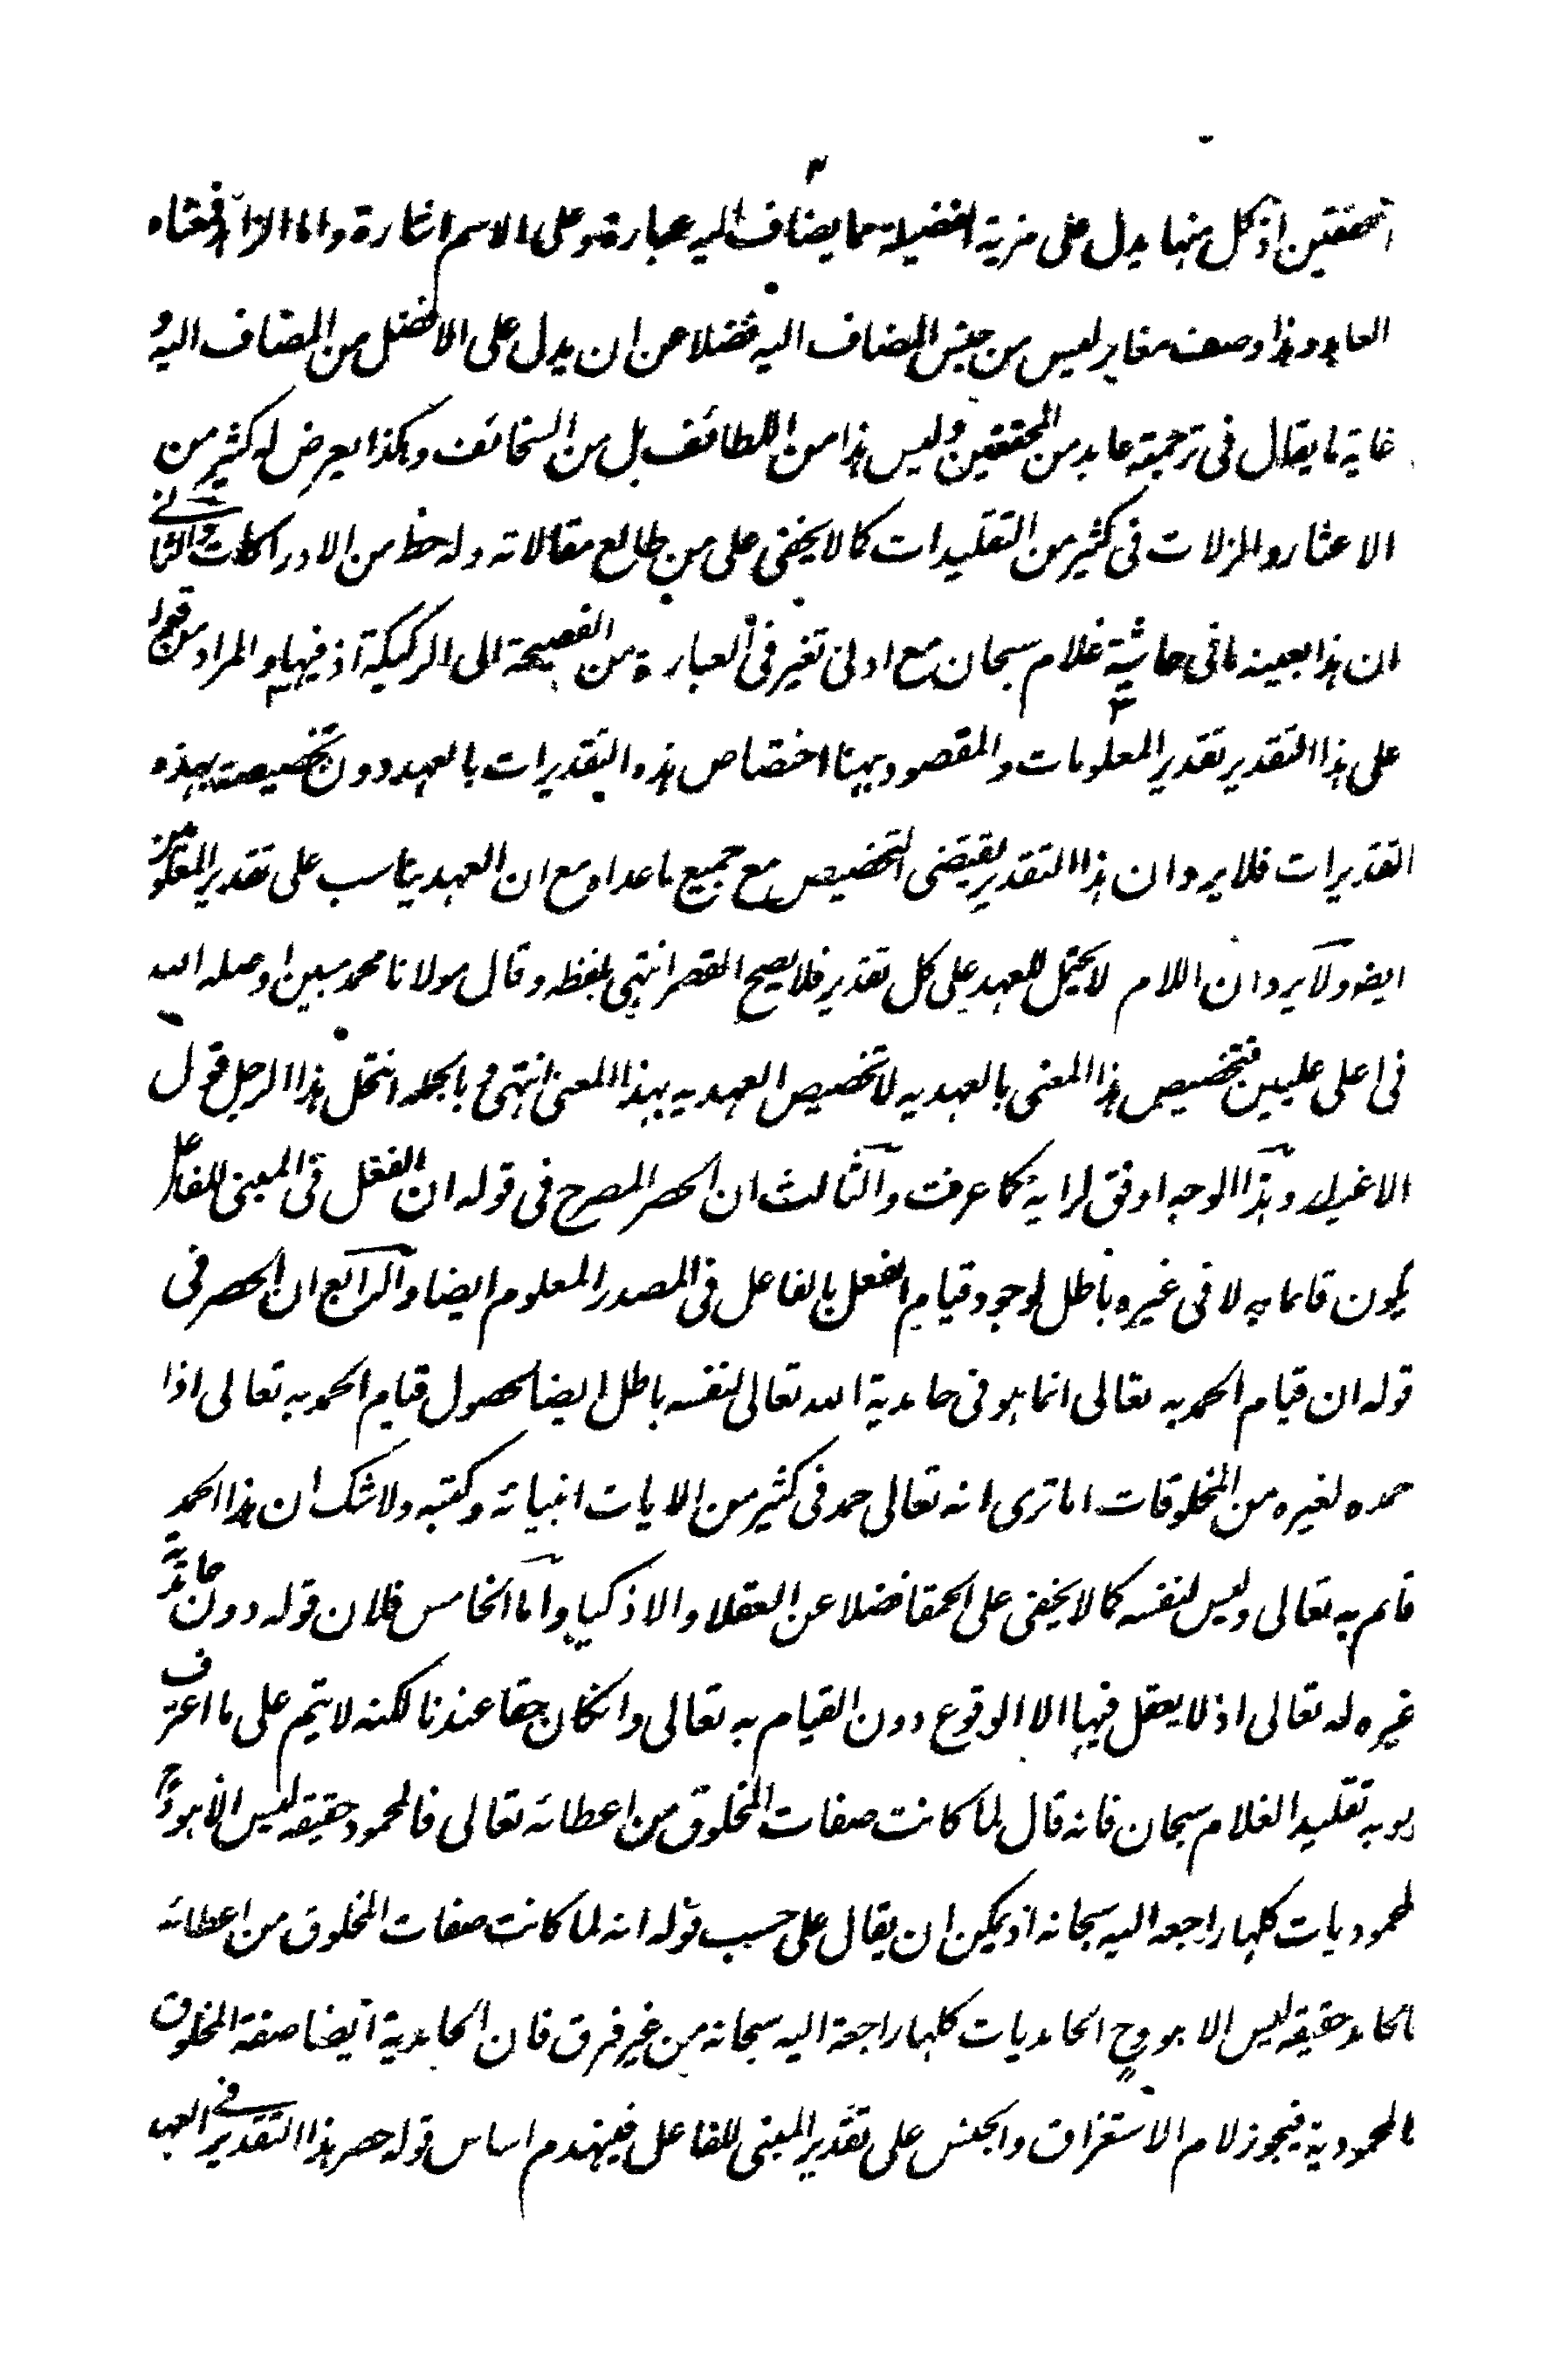 المحققين اذ كل منها يدل على مزية افضيلة مما يضاف اليه عبارة وعلى الاسم اشارة واما الزاهد فمعناه
العابد وهذا وصف مغاير ليس من جنس المضاف اليه فضلا عن ان يدل على الافضل من المضاف اليه و
غاية ما يقال فى ترجمة عابد من المحققين وليس هذا من اللطائف بل من السخائف وهكذا يعرض له كثير من
الاعثار والمزلات فى كثير من التقليدات كما لا يخفى على من طالع مقالاته وله حظ من الادراكات والثانى
ان هذا بعينه ما فى حاشية غلام سبحان مع ادنى تغير فى العبارة من الفصيحة الى الركيكة اذ فيها والمراد من قوله
على هذا التقدير تقدير المعلومات والمقصود ههنا اختصاص هذه التقديرات بالعهد دون تخصيصه بهذه
التقديرات فلا يرد ان هذا التقدير يقتضى التخصيص مع جميع ما عداه مع ان العهد يناسب على تقدير المعلومية
ايضا ولا يرد ان اللام لا يحتمل للعهد على كل تقدير فلا يصح القصر انتهى بلفظه وقال مولانا محمد مبين اوصله الله
فى اعلى عليين فتخصيص هذا المعنى بالعهدية لا تخصيص العهدية بهذا المعنى انتهى وبالجملة انتحل هذا الرجل قول
الاغيار وهذا الوجه اوفق لرايه كما عرفت والثالث ان الحصر المصرح فى قوله ان الفعل فى المبنى للفاعل
يكون قائما به لا فى غيره باطل لوجود قيام الفعل بالفاعل فى المصدر المعلوم ايضا والرابع ان الحصر فى
قوله ان قيام الحمد به تعالى انما هو فى حامدية الله تعالى لنفسه باطل ايضا لحصول قيام الحمد به تعالى اذا
حمده لغيره من المخلوقات اما ترى انه تعالى حمد فى كثير من الايات انبيائه وكتبه ولا شك ان هذا الحمد
قائم به تعالى وليس لنفسه كما لا يخفى على الحمقا فضلا عن العقلا والاذكيا واما الخامس فلان قوله دون حامدية
غيره له تعالى اذ لا يعقل فيها الا الوقوع دون القيام به تعالى وانكان حقا عندنا لكنه لا يتم على ما اعترف
هو به تقليدا لغلام سبحان فانه قال لما كانت صفات المخلوق من اعطائه تعالى فالمحمود حقيقه ليس الا هو وح
المحموديات كلها راجعه اليه سبحانه اذ يمكن ان يقال على حسب قوله انه لما كانت صفات المخلوق من اعطائه
فالحامد حقيقه ليس الا هو وح الحامديات كلها راجعة اليه سبحانه من غير فرق فان الحامدية ايضا صفة المخلوق
كالمحمودية فيجوز لام الاستغراق والجنس على تقدير المبنى للفاعل فينهدم اساس قوله حصر هذا التقدير فى العهد